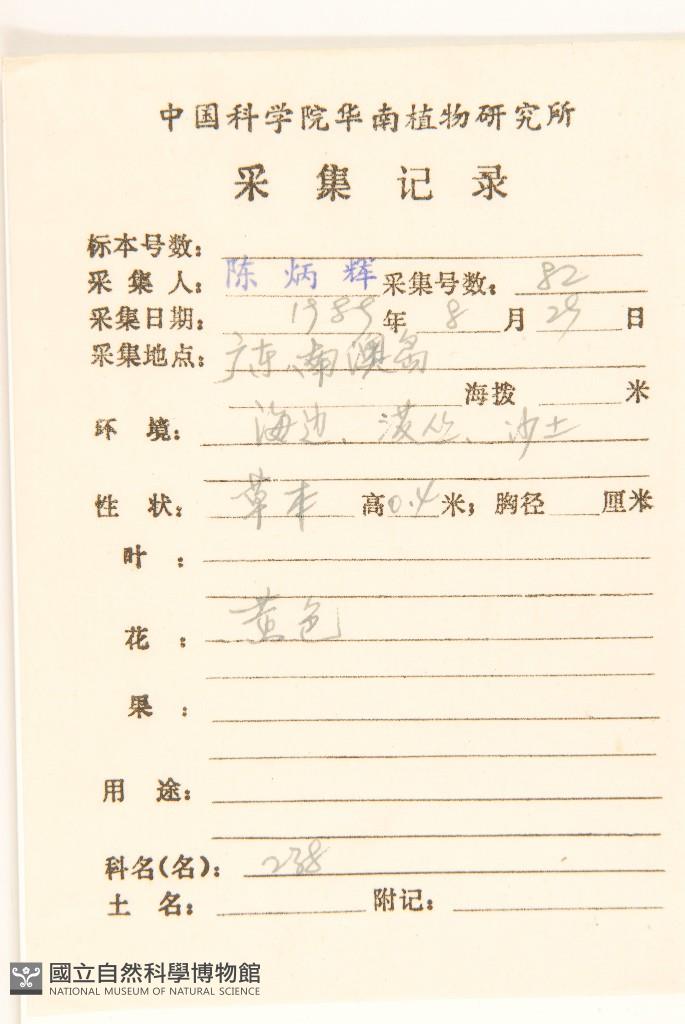 中国科学院华南植物研究所
采集记录
标本号数:
采集人: 陈炳辉 采集号数: 82
采集日期: 1989年 8月 29日
采集地点: 广东、南澳岛
海拨 米
环境: 海边、灌丛、沙土
性状: 草本 高0.4米; 胸径 厘米
叶:
花: 黄色
果:
用途:
科名(名): 238
土名: 附记:
國立自然科學博物館
NATIONAL MUSEUM OF NATURAL SCIENCE